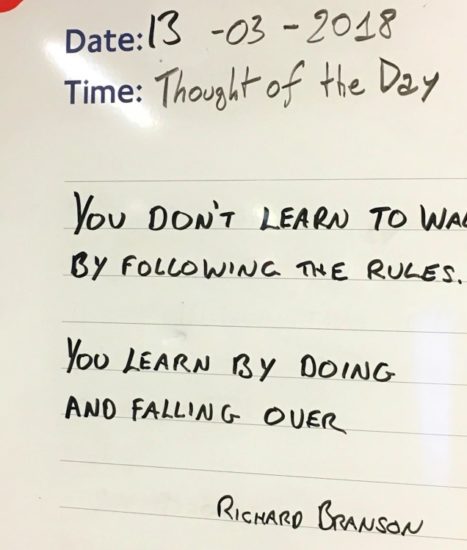 Date: 13 -03 - 2018
Time: Thought of the Day
YOU DON'T LEARN TO WA
BY FOLLOWING THE RULES.
YOU LEARN BY DOING
AND FALLING OVER
RICHARD BRANSON